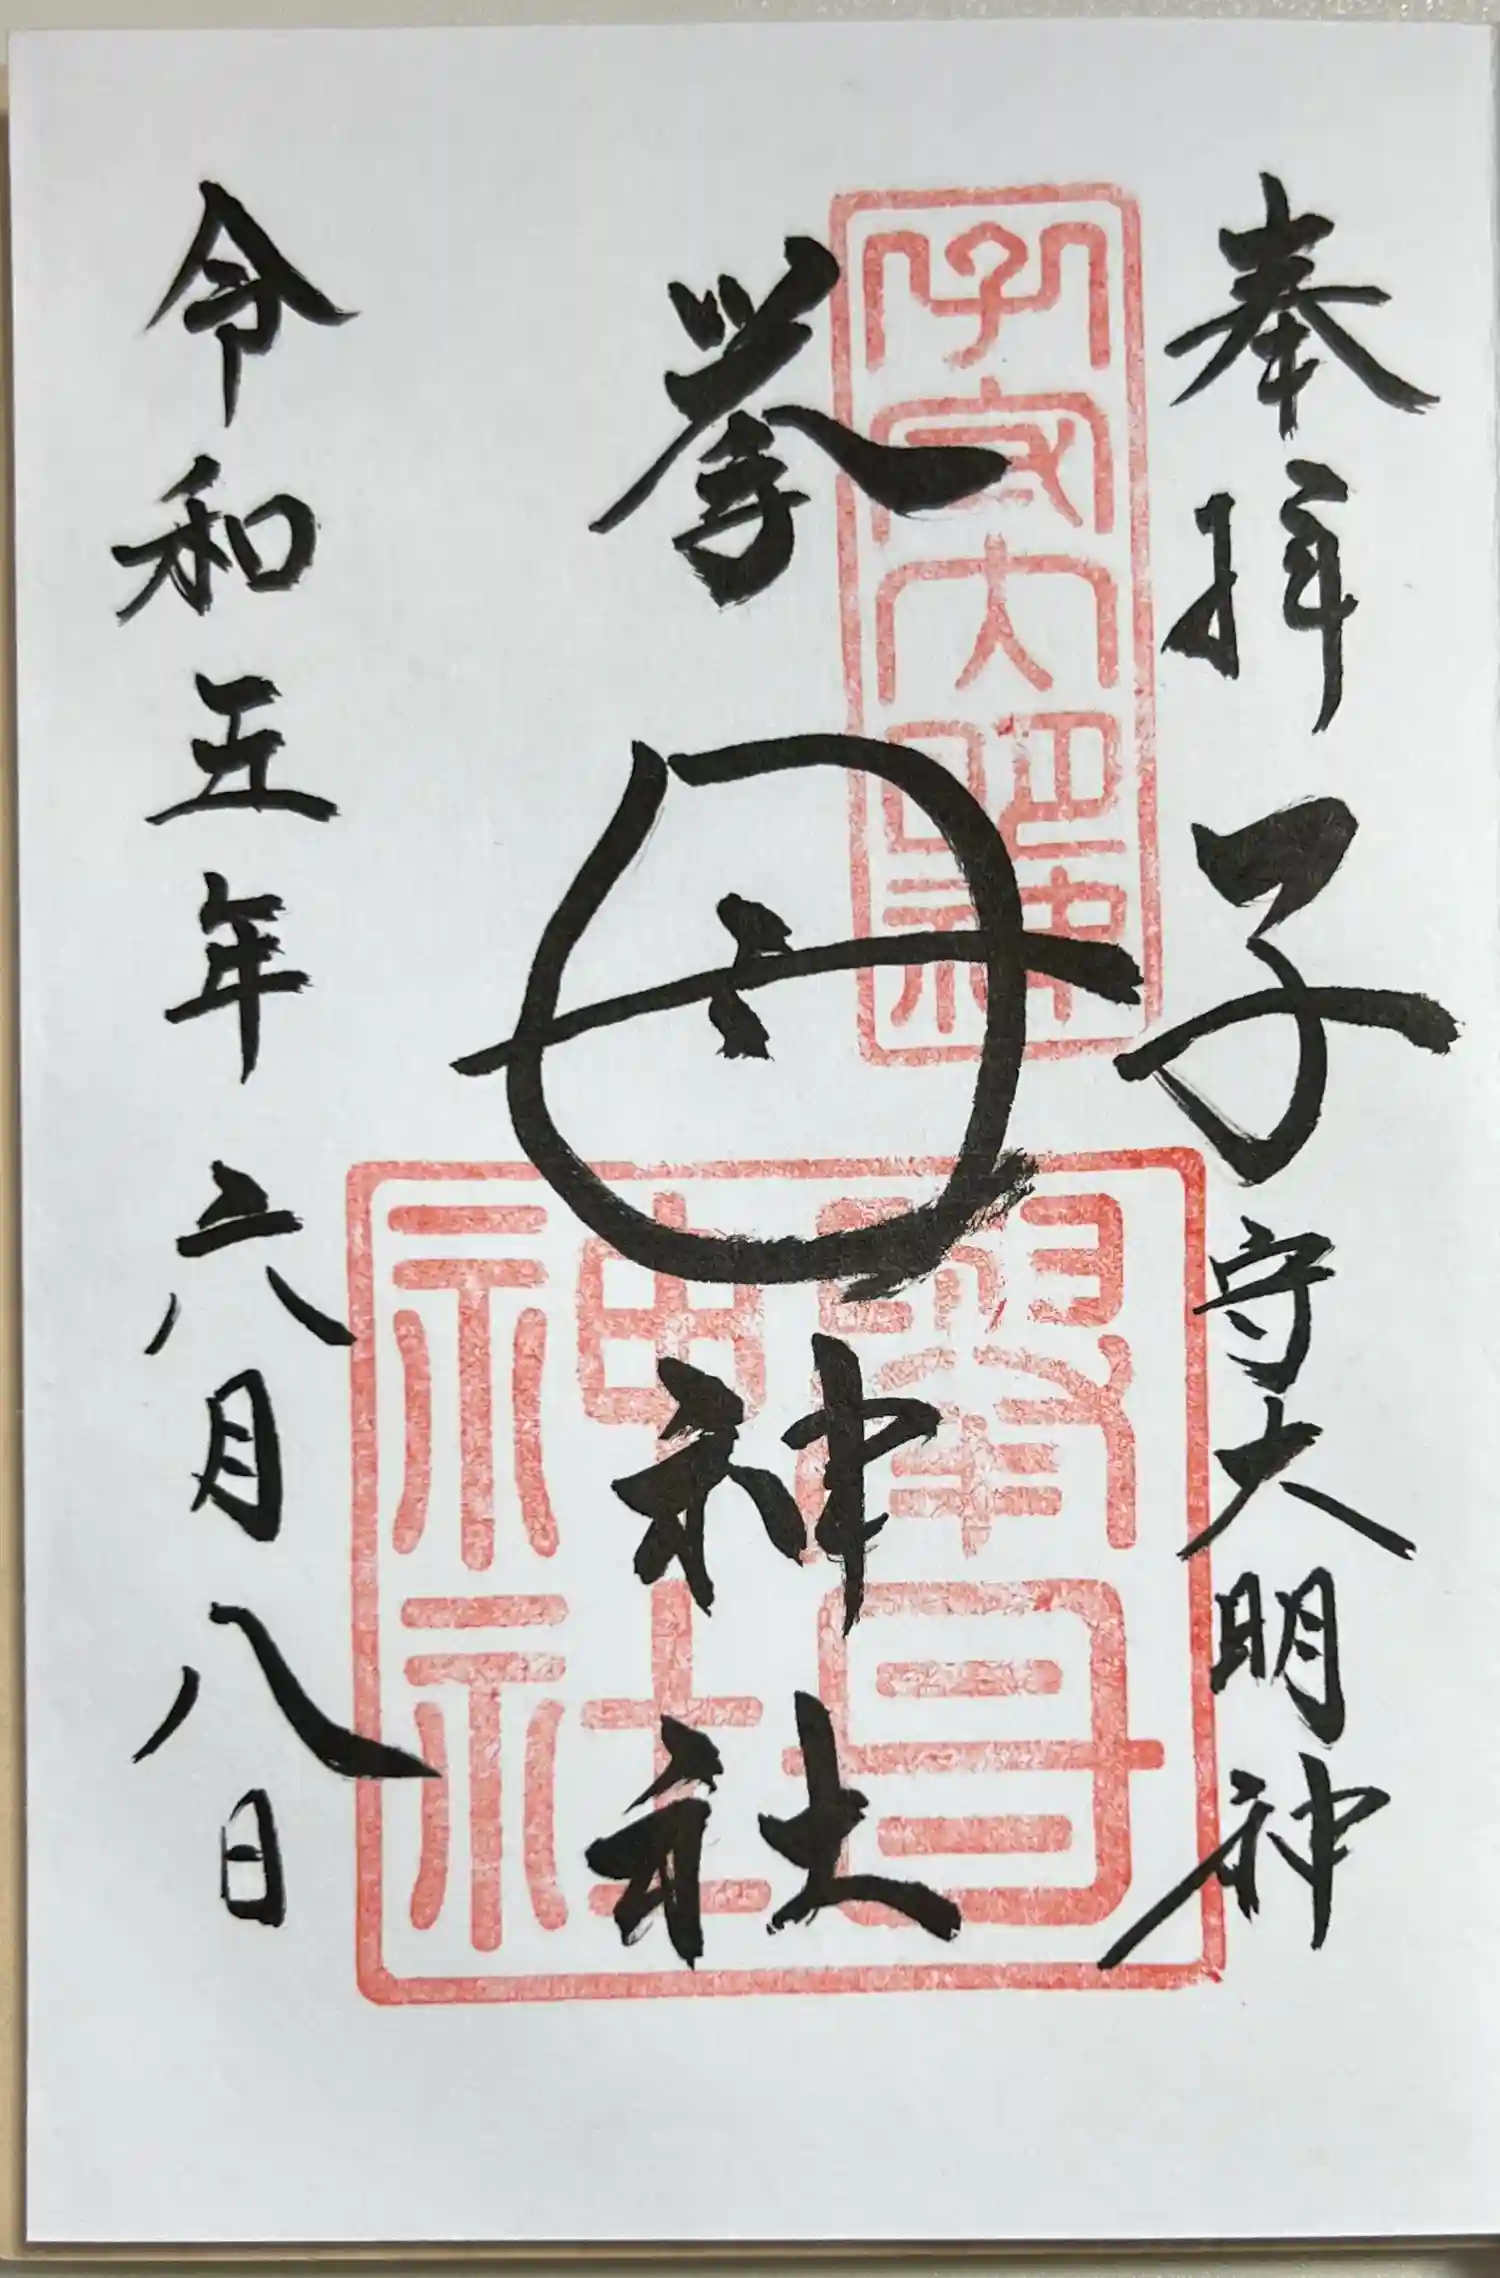 奉拝
子守大明神
挙母神社
令和五年六月八日
子守大明神
挙母神社